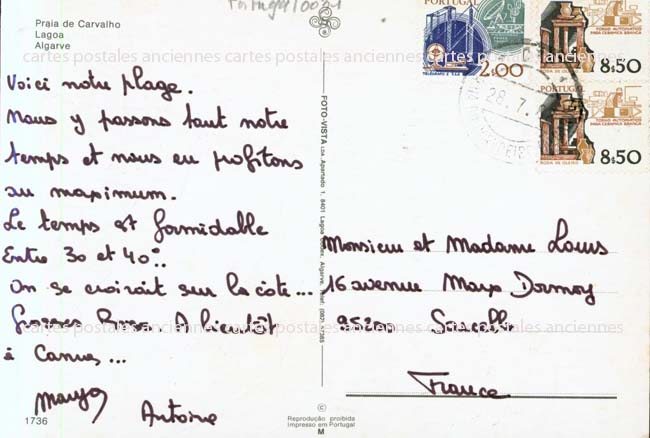 Praia de Carvalho
Lagoa
Algarve
cartes postales anciennes cartes postales anciennes cartes postales anciennes
Voici notre plage.
Nous y passons tout notre
temps et nous en profitons
au maximum.
Le temps est formidable
Entre 30 et 40°.
On se croirait sur la côte...
Grosses Bises. A bientôt
à Cannes...
Antoine
1736
PORTUGAL
2$00
PORTUGAL
TORNO AUTOMATICO
PARA CERAMICA BRANCA
RODA DE OLEIRO
8$50
8$50
28.7.
FOTO-VISTA LDA. Apartado 1, 8401 Lagoa Codex, Algarve.
Monsieur et Madame Louis
16 avenue Marx Dormoy
95200 Sarcelles
France
cartes postales anciennes cartes postales anciennes cartes postales anciennes
©
Reprodução proibida
Impresso em Portugal
M